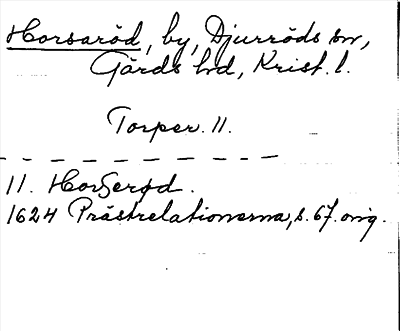 Horsaröd, by, Djurröds sn,
Gärds hd, Krist. l.
Torper. 11.
11. Horserød.
1624 Prästrelationerna, s. 67. orig.